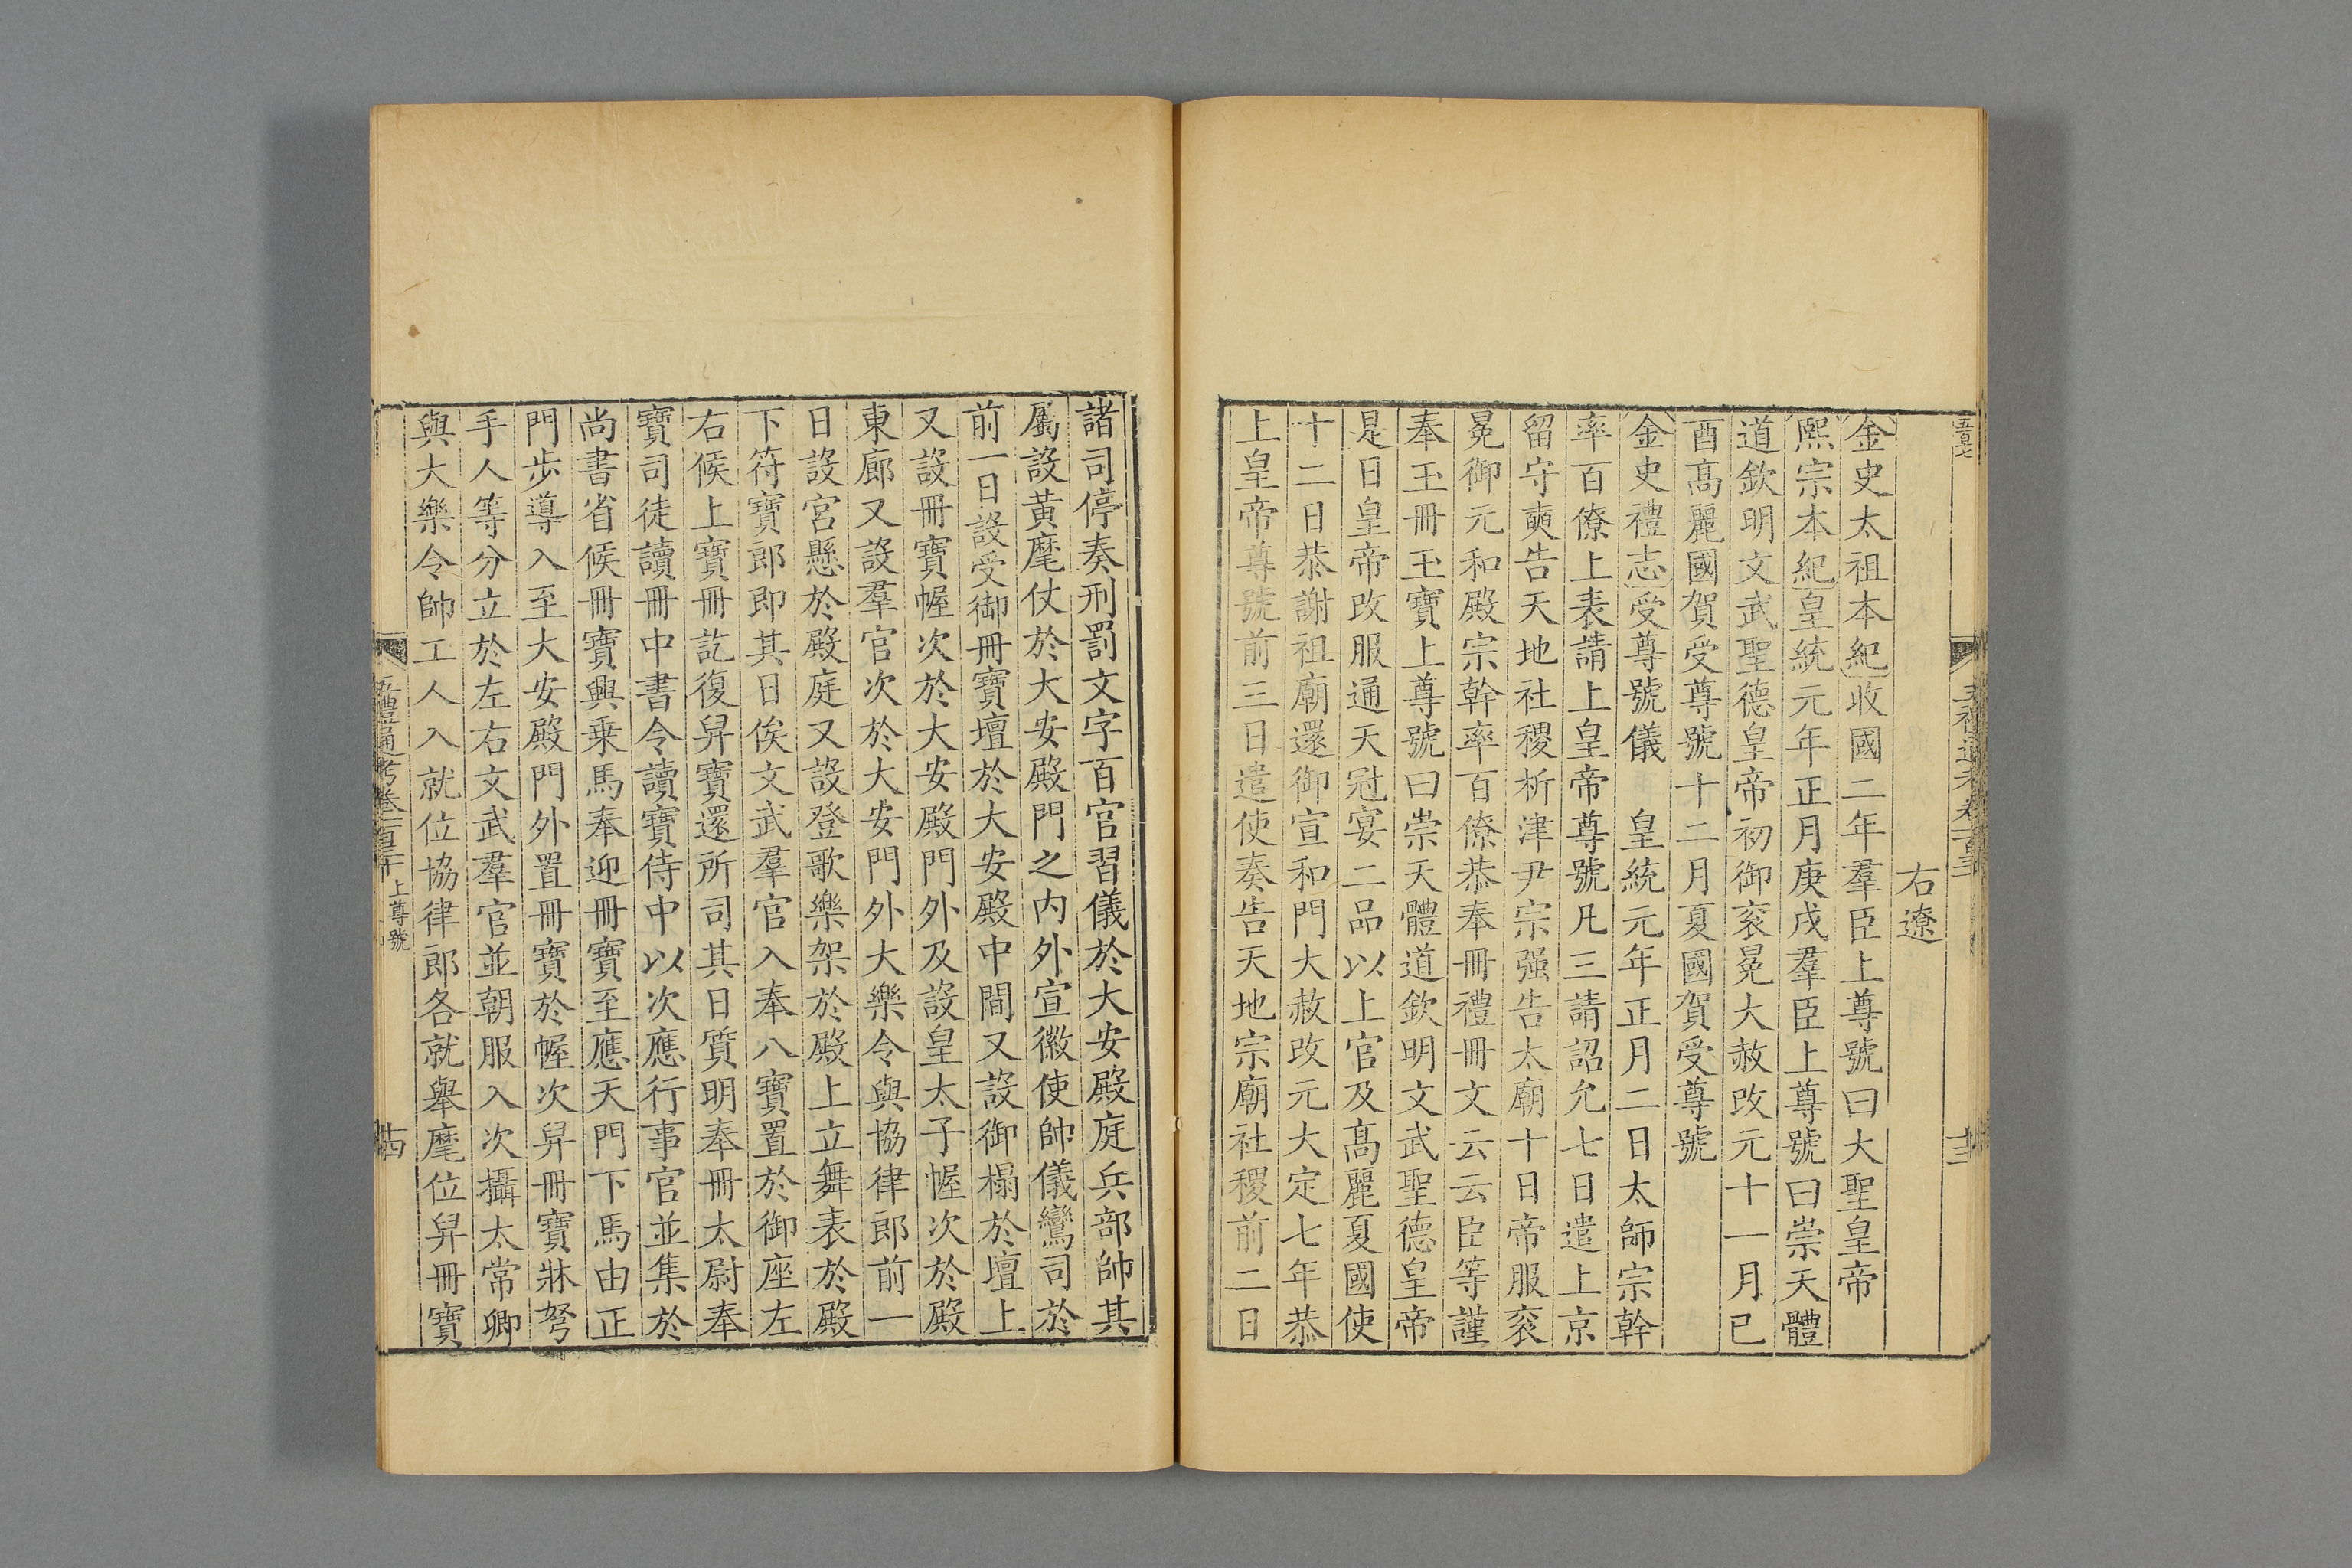 右遼
金史太祖本紀收國二年羣臣上尊號曰大聖皇帝
熙宗本紀皇統元年正月庚戌羣臣上尊號曰崇天體
道欽明文武聖德皇帝初御衮冕大赦改元十一月己
酉高麗國賀受尊號十二月夏國賀受尊號
金史禮志受尊號儀 皇統元年正月二日太師宗幹
率百僚上表請上皇帝尊號凡三請詔允七日遣上京
留守奭告天地社稷析津尹宗强告太廟十日帝服衮
冕御元和殿宗幹率百僚恭奉冊禮冊文云云臣等謹
奉玉冊玉寶上尊號曰崇天體道欽明文武聖德皇帝
是日皇帝改服通天冠宴二品以上官及高麗夏國使
十二日恭謝祖廟還御宣和門大赦改元大定七年恭
上皇帝尊號前三日遣使奏告天地宗廟社稷前二日
諸司停奏刑罰文字百官習儀於大安殿庭兵部帥其
屬設黃麾仗於大安殿門之內外宣徽使帥儀鸞司於
前一日設受御冊寶壇於大安殿中間又設御榻於壇上
又設冊寶幄次於大安殿門外及設皇太子幄次於殿
東廊又設羣官次於大安門外大樂令與協律郎前一
日設宮懸於殿庭又設登歌樂架於殿上立舞表於殿
下符寶郎即其日俟文武羣官入奉八寶置於御座左
右候上寶冊訖復舁寶還所司其日質明奉冊太尉奉
寶司徒讀冊中書令讀寶侍中以次應行事官並集於
尚書省候冊寶興乗馬奉迎冊寶至應天門下馬由正
門步導入至大安殿門外置冊寶於幄次舁冊寶牀弩
手人等分立於左右文武羣官並朝服入次攝太常卿
與大樂令帥工人入就位協律郎各就舉麾位舁冊寶
五禮通考卷一百三十 上尊號
十四